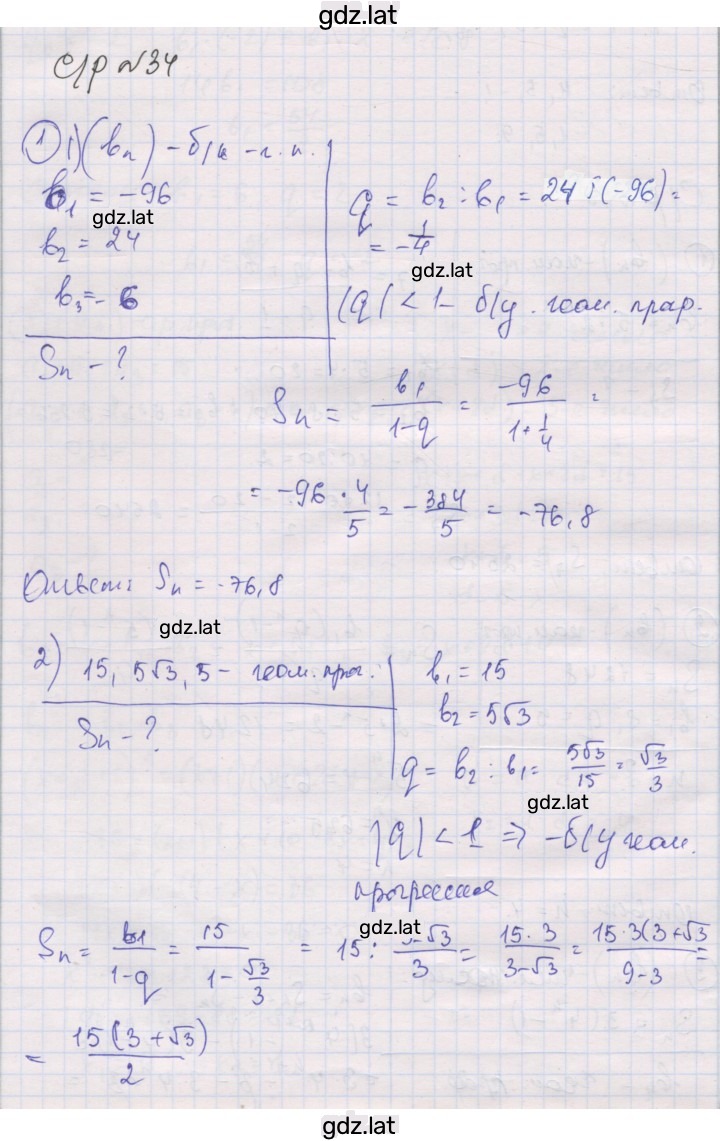 gdz.lat
С/р №34
① 1) (bₙ) - б/к - г. п.
b₁ = -96
gdz.lat
b₂ = 24
b₃ = - 6
Sₙ - ?
q = b₂ : b₁ = 24 : (-96) =
= -1/4
gdz.lat
|q| < 1 - б/у. геом. прог.
Sₙ = b₁/(1-q) = -96/(1+1/4) =
= -96 · 4/5 = -384/5 = -76,8
Ответ: Sₙ = -76,8
gdz.lat
2) 15, 5√3, 5 - геом. прог.
Sₙ - ?
b₁ = 15
b₂ = 5√3
q = b₂ : b₁ = 5√3/15 = √3/3
gdz.lat
|q| < 1 => - б/у геом.
прогрессия
gdz.lat
Sₙ = b₁/(1-q) = 15/(1-√3/3) = 15 : (3-√3)/3 = 15·3/(3-√3) = 15·3(3+√3)/(9-3) =
= 15(3+√3)/2
gdz.lat